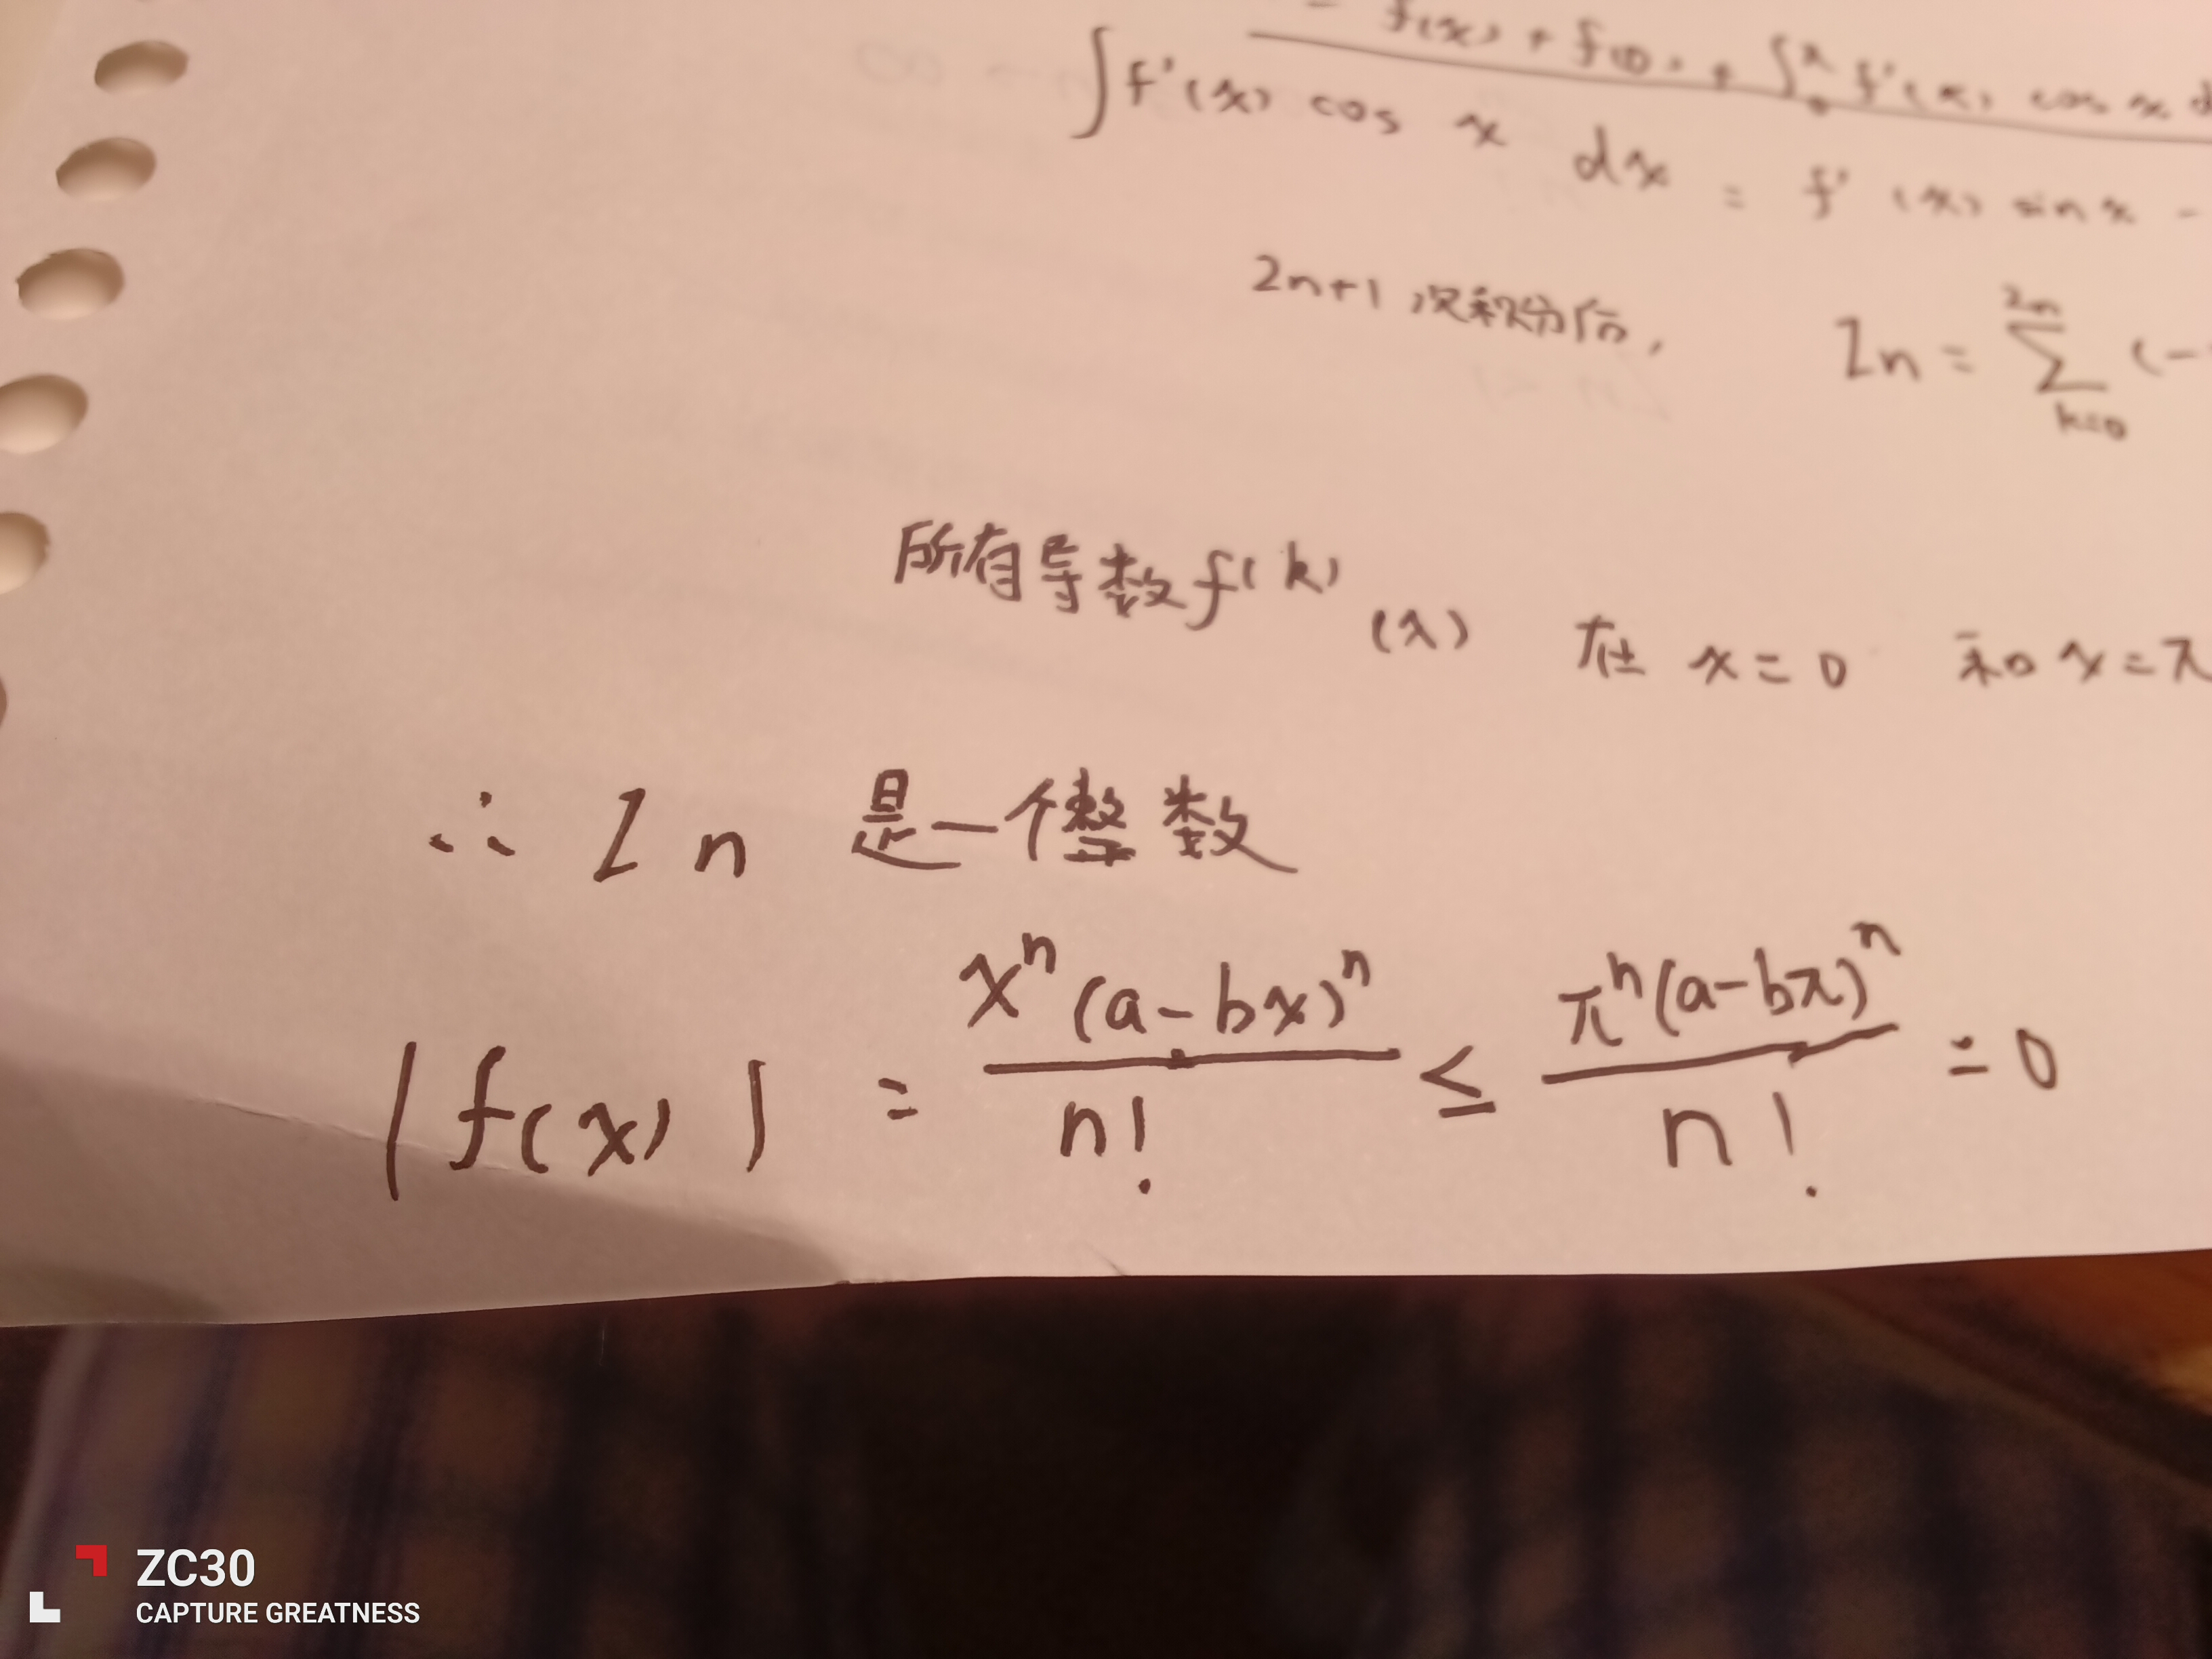 f(x) + f(0) + ∫₀^π f'(x) cos x d
∫ f'(x) cos x dx = f'(x) sin x -
2n+1 次积分后, In = ∑_{k=0}^{2n} (-
所有导数 f^(k) (x) 在 x = 0 和 x = π
∴ In 是一个整数
|f(x)| = x^n (a-bx)^n / n! ≤ π^n (a-bπ)^n / n! = 0
ZC30
CAPTURE GREATNESS